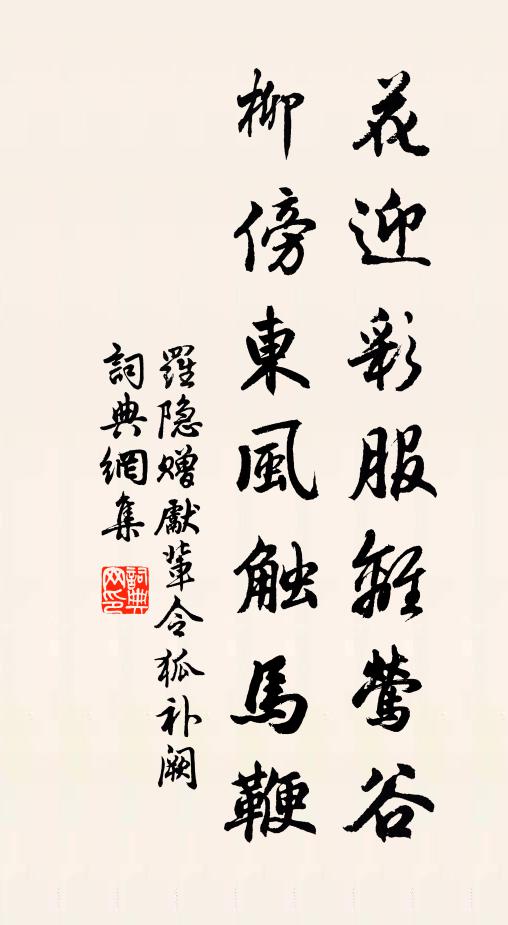 花迎彩服離鶯谷
柳傍東風触馬鞭
羅隐贈獻輩令狐补阙
詞典網集
詞典网印